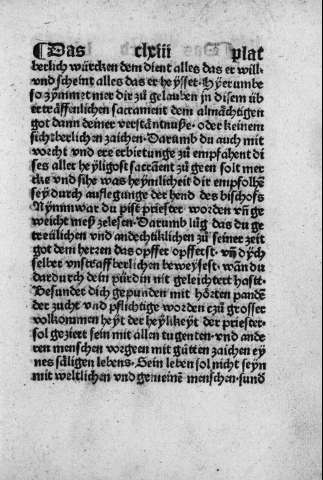 ¶Das clxiii plat
berlich würcken dem dient alles das er will·
vnd scheint alles das er heysset· Hyerumbe
so zymmet mer dir zů gelauben in disem üb
ertraͤffenlichen sacrament dem almaͤchtigen
got dann deiner verstaͤntnuße· oder keinem
sichtberlichen zaichen· Darumb du auch mit
vorcht vnd ere erbietunge zů empfahent di
ses aller heyligost sacramēt zů geen solt mer
cks vnd sihe was heymlicheit dir empfolhē
sey durch auflegunge der hend des bischofs
Nymm war du pist priester worden vn̄ ge
weicht meß zelesen· Darumb lůg das du ge
treülichen vnd andechtiklichen zů seiner zeit
got dem herren das opffer opfferst· vn̄ dych
selber vnstraffberlichen beweysest· wan̄ du
dardurch dein pürdin nit geleichtert hastt·
Besunder dich gepunden mit hoͤrten pande
der zucht vnd pflichtige worden czů grosser
volkommen heyt der heylikeyt der priester·
sol geziert sein mit allen tugenten· vnd ande
ren menschen vorgeen mit gůtten zaichen ey
nes saͤligen lebens· Sein leben sol nicht seyn
mit weltlichen vnd gemeinē menschen· sund